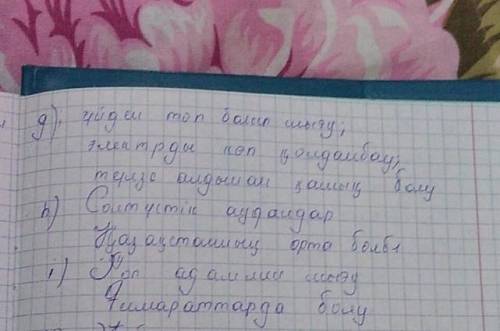 g) үйден топ болып шығу;
электрды көп қолданбау;
терезе алдынан қашық болу
h) Солтүстік аудандар
Қазақстанның орта бөлігі
i) Көп адаммен шығу
Ғимараттарда болу